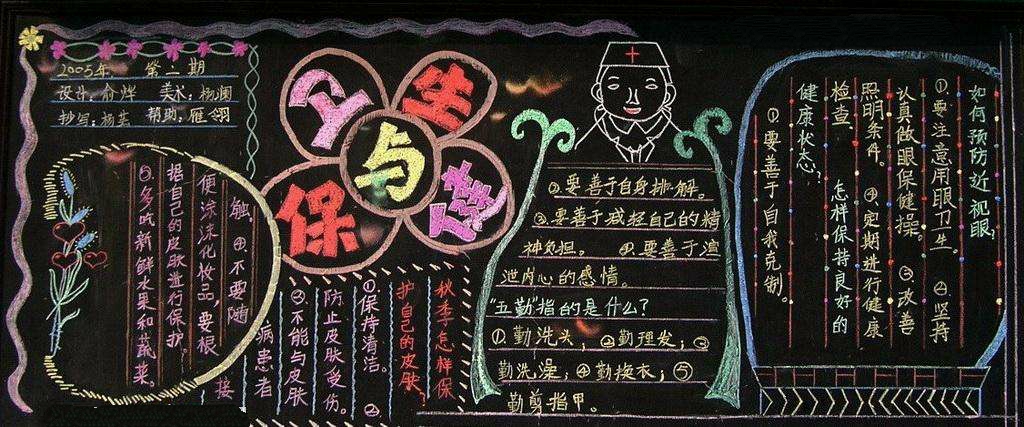 2005年 第二期
设计：俞烨 美术：杨澜
抄写：杨英 帮助：雁翎
卫生
与
保健
如何预防近视眼？
①要注意用眼卫生 ②坚持
认真做眼保健操。③改善
照明条件。④定期进行健康
检查。 怎样保持良好的
健康状态？
①要善于自我克制。
②要善于自身排解。
③要善于减轻自己的精
神负担。 ④要善于渲
泄内心的感情。
"五勤"指的是什么？
①勤洗头；②勤理发；③
勤洗澡；④勤换衣；⑤
勤剪指甲。
秋季怎样保
护自己的皮肤？
①保持清洁。②
防止皮肤受伤。
③不能与皮肤
病患者
接
触 ④不要随
便涂沫化妆品，要根
据自己的皮肤进行保护。
⑤多吃新鲜水果和蔬菜。